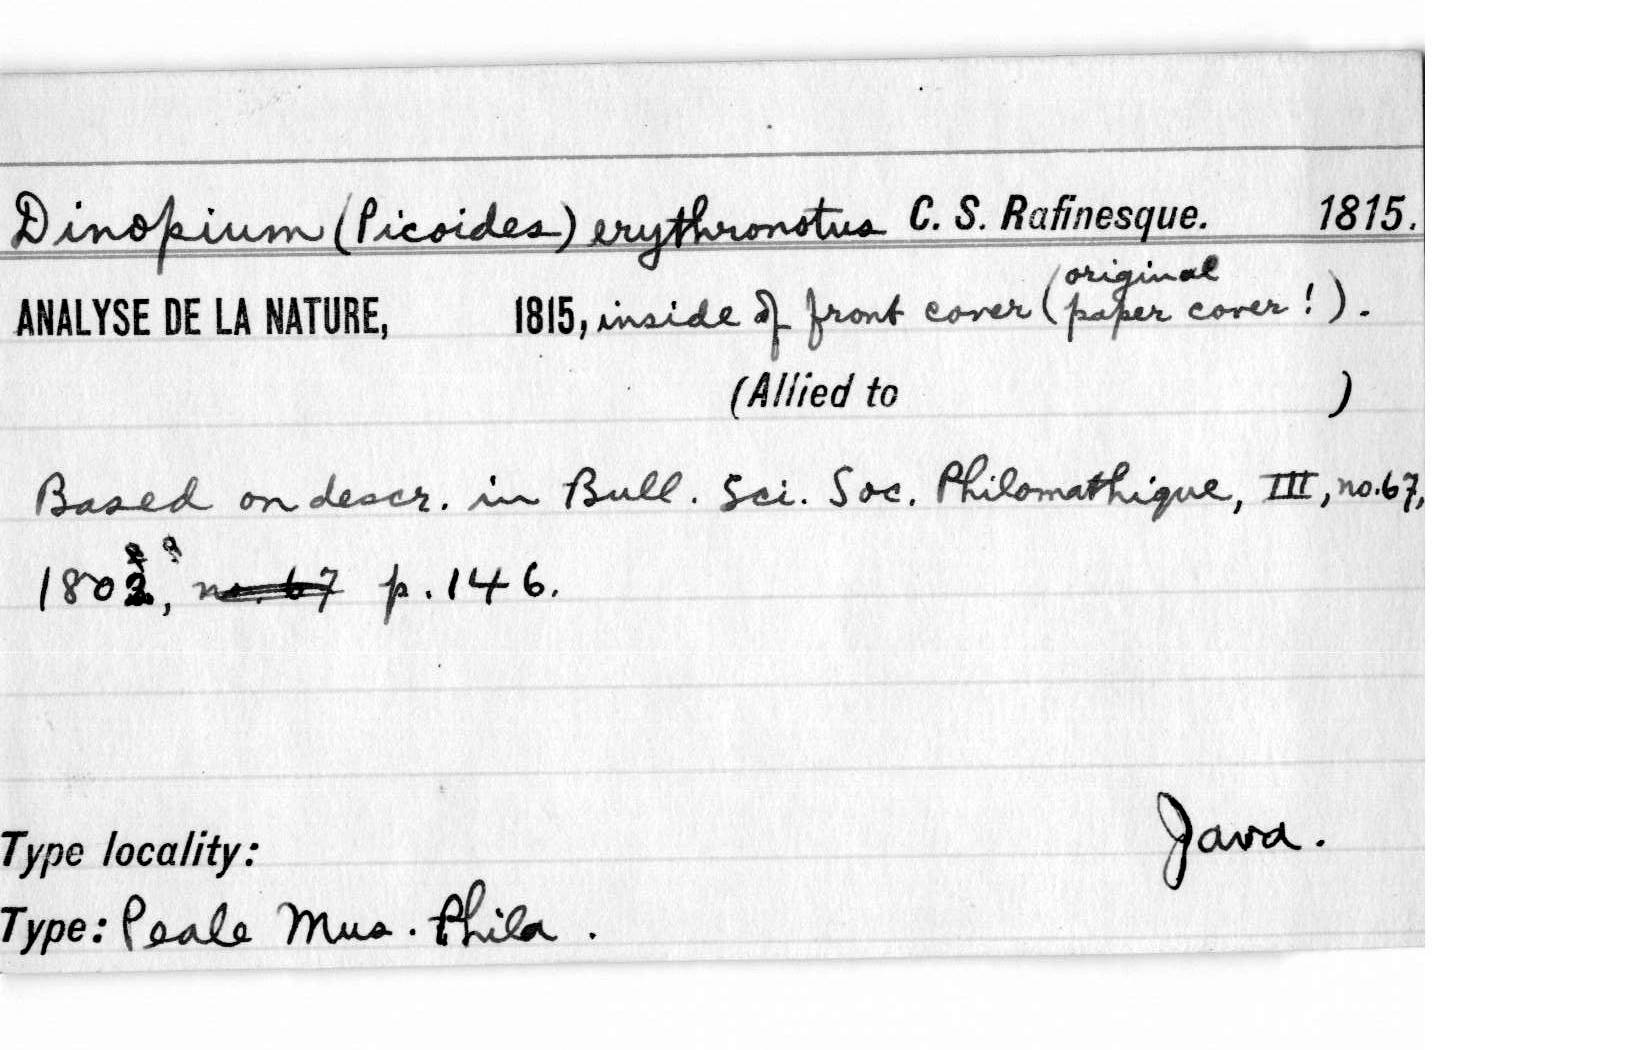 Dinopium (Picoides) erythronotus C. S. Rafinesque. 1815.
ANALYSE DE LA NATURE, 1815, inside of front cover (original paper cover!).
(Allied to )
Based on descr. in Bull. Sci. Soc. Philomathique, III, no. 67,
1802, no. 67 p. 146.
Type locality: Java.
Type: Peale Mus. Phila.